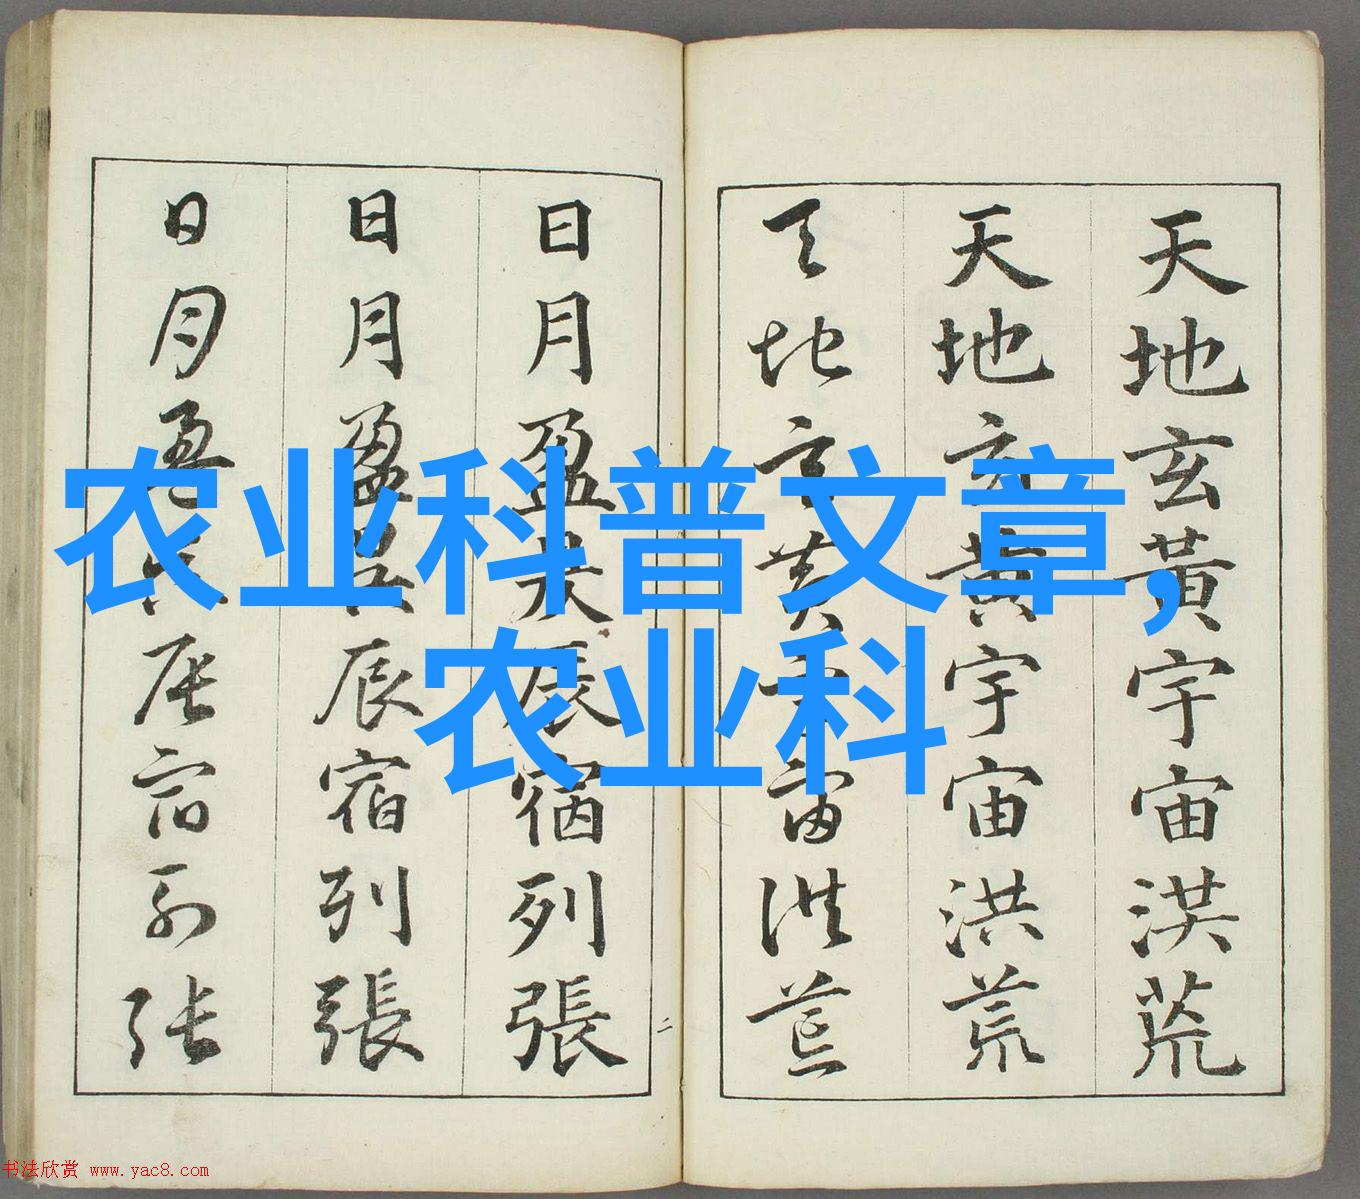 农业科普文章,
农业科
天地玄黃宇宙洪荒
天地玄黃宇宙洪荒
天地玄黃宇宙洪荒
二
日月盈昃辰宿列張
日月盈昃辰宿列張
日月盈昃辰宿列張
书法欣赏 www.yac8.com